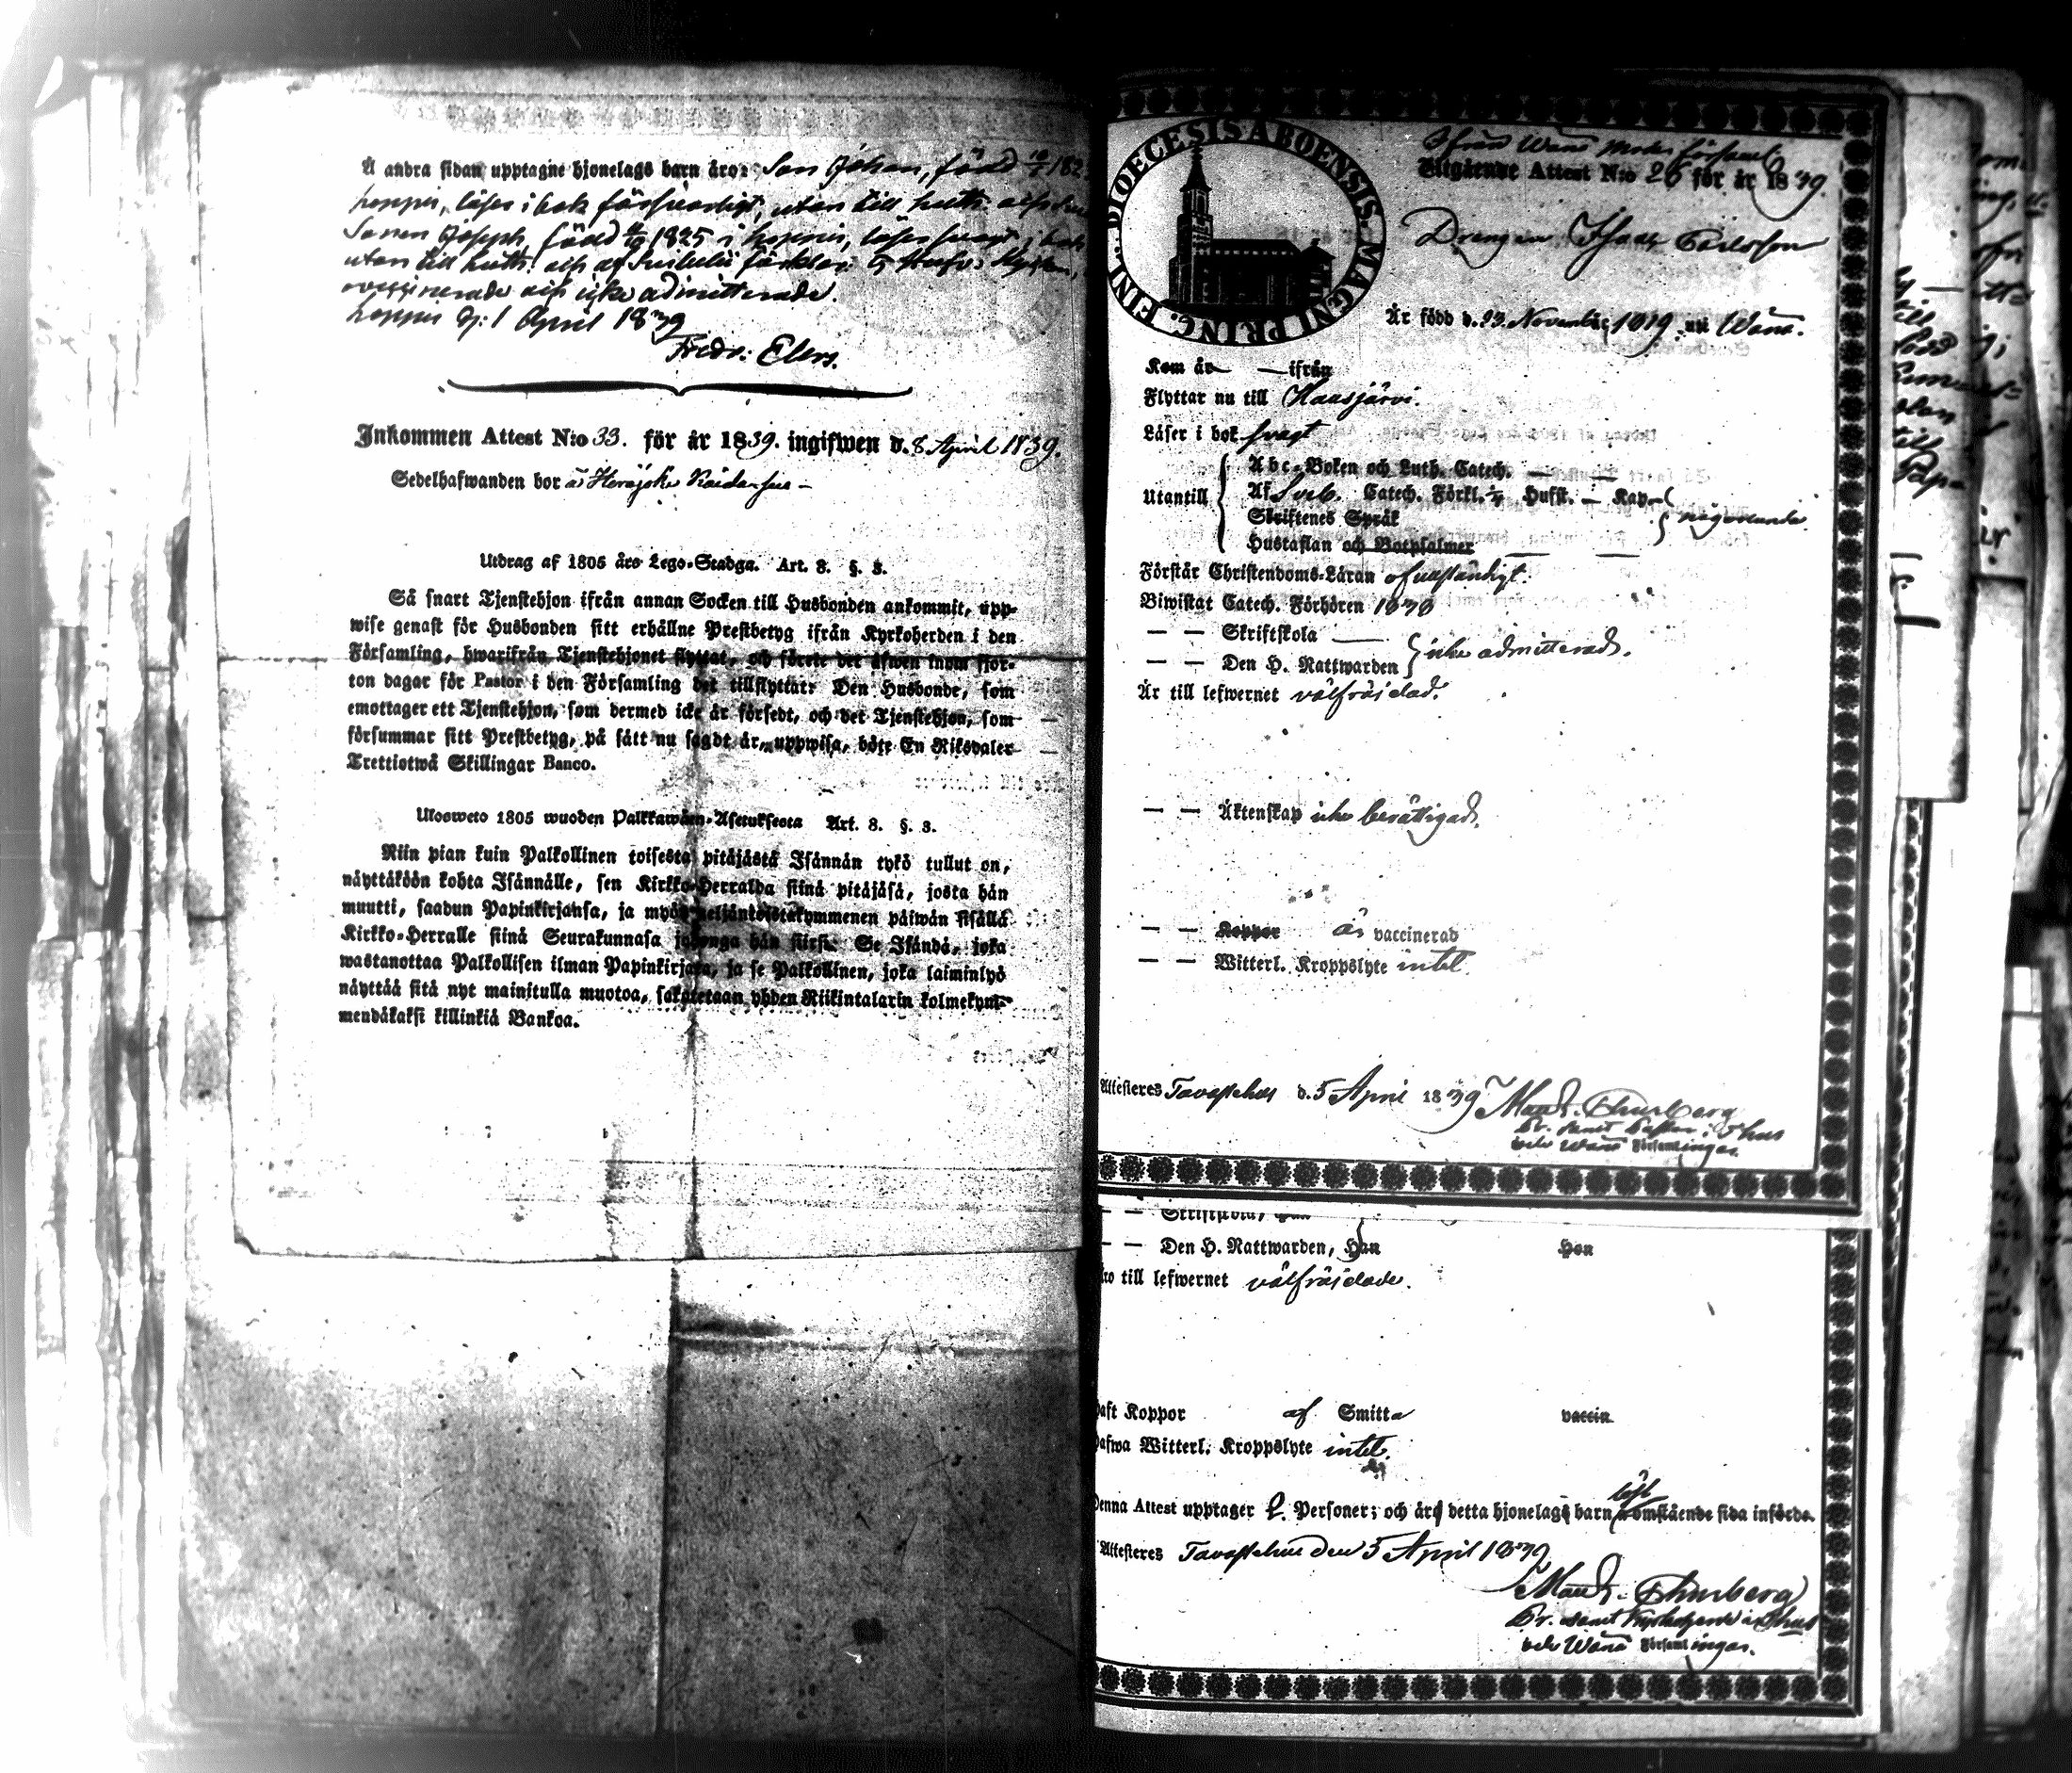 Å andra sidan upptagne hjonelags barn äro: Son Johan, född
Loppis, läser i bok försvarligt, utan till Luth.
Sonen Joseph, född 1825 i Loppis, läser svagt i bok
utan till Luth.
vaccinerade och icke admitterade.
Loppis d: 1 April 1839
Fredr: Elers.
Inkommen Attest N:o 33. för år 1839. ingifwen d. 8 April 1839.
Sedelhafwanden bor å
Utdrag af 1805 års Lego-Stadga. Art. 8. §. 3.
Så snart Tjenstehjon ifrån annan Socken till Husbonden ankommit, upp-
wise genast för Husbonden sitt erhållne Prestbetyg ifrån Kyrkoherden i den
Församling, hwarifrån Tjenstehjonet flyttat, och förete det äfwen inom fjor-
ton dagar för Pastor i den Församling det tillflyttat: Den Husbonde, som
emottager ett Tjenstehjon, som dermed icke är försedt, och det Tjenstehjon, som
försummar sitt Prestbetyg, på sätt nu sagdt är, uppwisa, böte En Riksdaler
Trettiotwå Skillingar Banco.
Ulosweto 1805 wuoden Palkkawäen-Asetuksesta Art. 8. §. 3.
Niin pian kuin Palkollinen toisesta pitäjästä Isännän tykö tullut on,
näyttäköön kohta Isännälle, sen Kirkko-Herralda siinä pitäjäsä, josta hän
muutti, saadun Papinkirjansa, ja myös neljäntoistakymmenen päiwän sisällä
Kirkko-Herralle siinä Seurakunnasa johonga hän siirsi. Se Isändä, joka
wastanottaa Palkollisen ilman Papinkirjata, ja se Palkollinen, joka laiminlyö
näyttää sitä nyt mainitulla muotoa, sakotetaan yhden Riikintalarin kolmekym-
mendäkaksi killinkiä Bankoa.
DIOECESIS ABOENSIS MAGNI PRINC. FINL.
Ifrån Wånå Moder församl.
Utgående Attest N:o 26 för år 1839.
Drängen Isaac Carlsson
Är född d. 23 November 1819. uti Wånå.
Kom år — — ifrån
Flyttar nu till Hausjärvi.
Läser i bok svagt
Utantill
Abc-Boken och Luth. Catech. —
Af Sveb. Catech. Förkl. Hufst. — Kap. —
Skriftenes Språk
någorlunda.
Hustaflan och Botpsalmer — —
Förstår Christendoms-Läran ofullständigt.
Biwistat Catech. Förhören 1838
— — Skriftskola —
icke admitterad.
— — Den H. Nattwarden
Är till lefwernet välfräjdad.
— — Äktenskap icke berättigad.
— — Koppor är vaccinerad
— — Witterl. Kroppslyte intet.
Attesteres Tavastehus d. 5 April 1839
Thurberg
och Wånå Församlingar.
— — Skriftskola, Han
— — Den H. Nattwarden, Han Hon
Äro till lefwernet välfräjdade.
Haft Koppor af Smitta vaccin.
Hafwa Witterl. Kroppslyte intet.
Denna Attest upptager 2 Personer; och äro detta hjonelags barn å omstående sida införde.
Attesteres Tavastehus den 5 April 1839
Thurberg
och Wånå Församlingar.